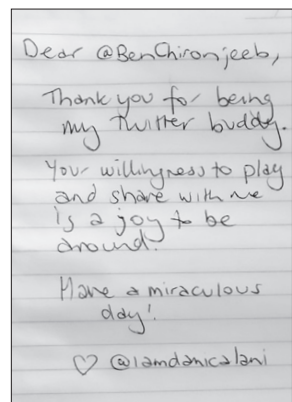 Dear @BenChironjeeb,
Thank you for being
my Twitter buddy.
Your willingness to play
and share with me
is a joy to be
around!
Have a miraculous
day!
♡ @iamdanicalani